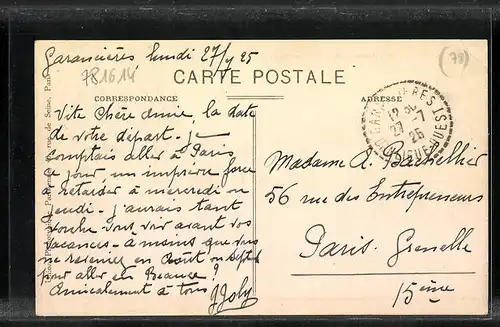 Garancières lundi 27/7 25
781614
(78)
CARTE POSTALE
CORRESPONDANCE
ADRESSE
Vite Chère Amie, la date
de votre départ - je
comptais aller à Paris
ce jour un imprévu force
à retarder à mercredi ou
Jeudi - j'aurais tant
voulu vous voir avant vos
vacances - à moins que vous
ne reveniez en Août ou Sept
pour aller en Beauce?
Amicalement à tous
J Joly
Madame A. Bachellier
56 rue des Entrepreneurs
Paris. Grenelle
15ème
27 -7
25